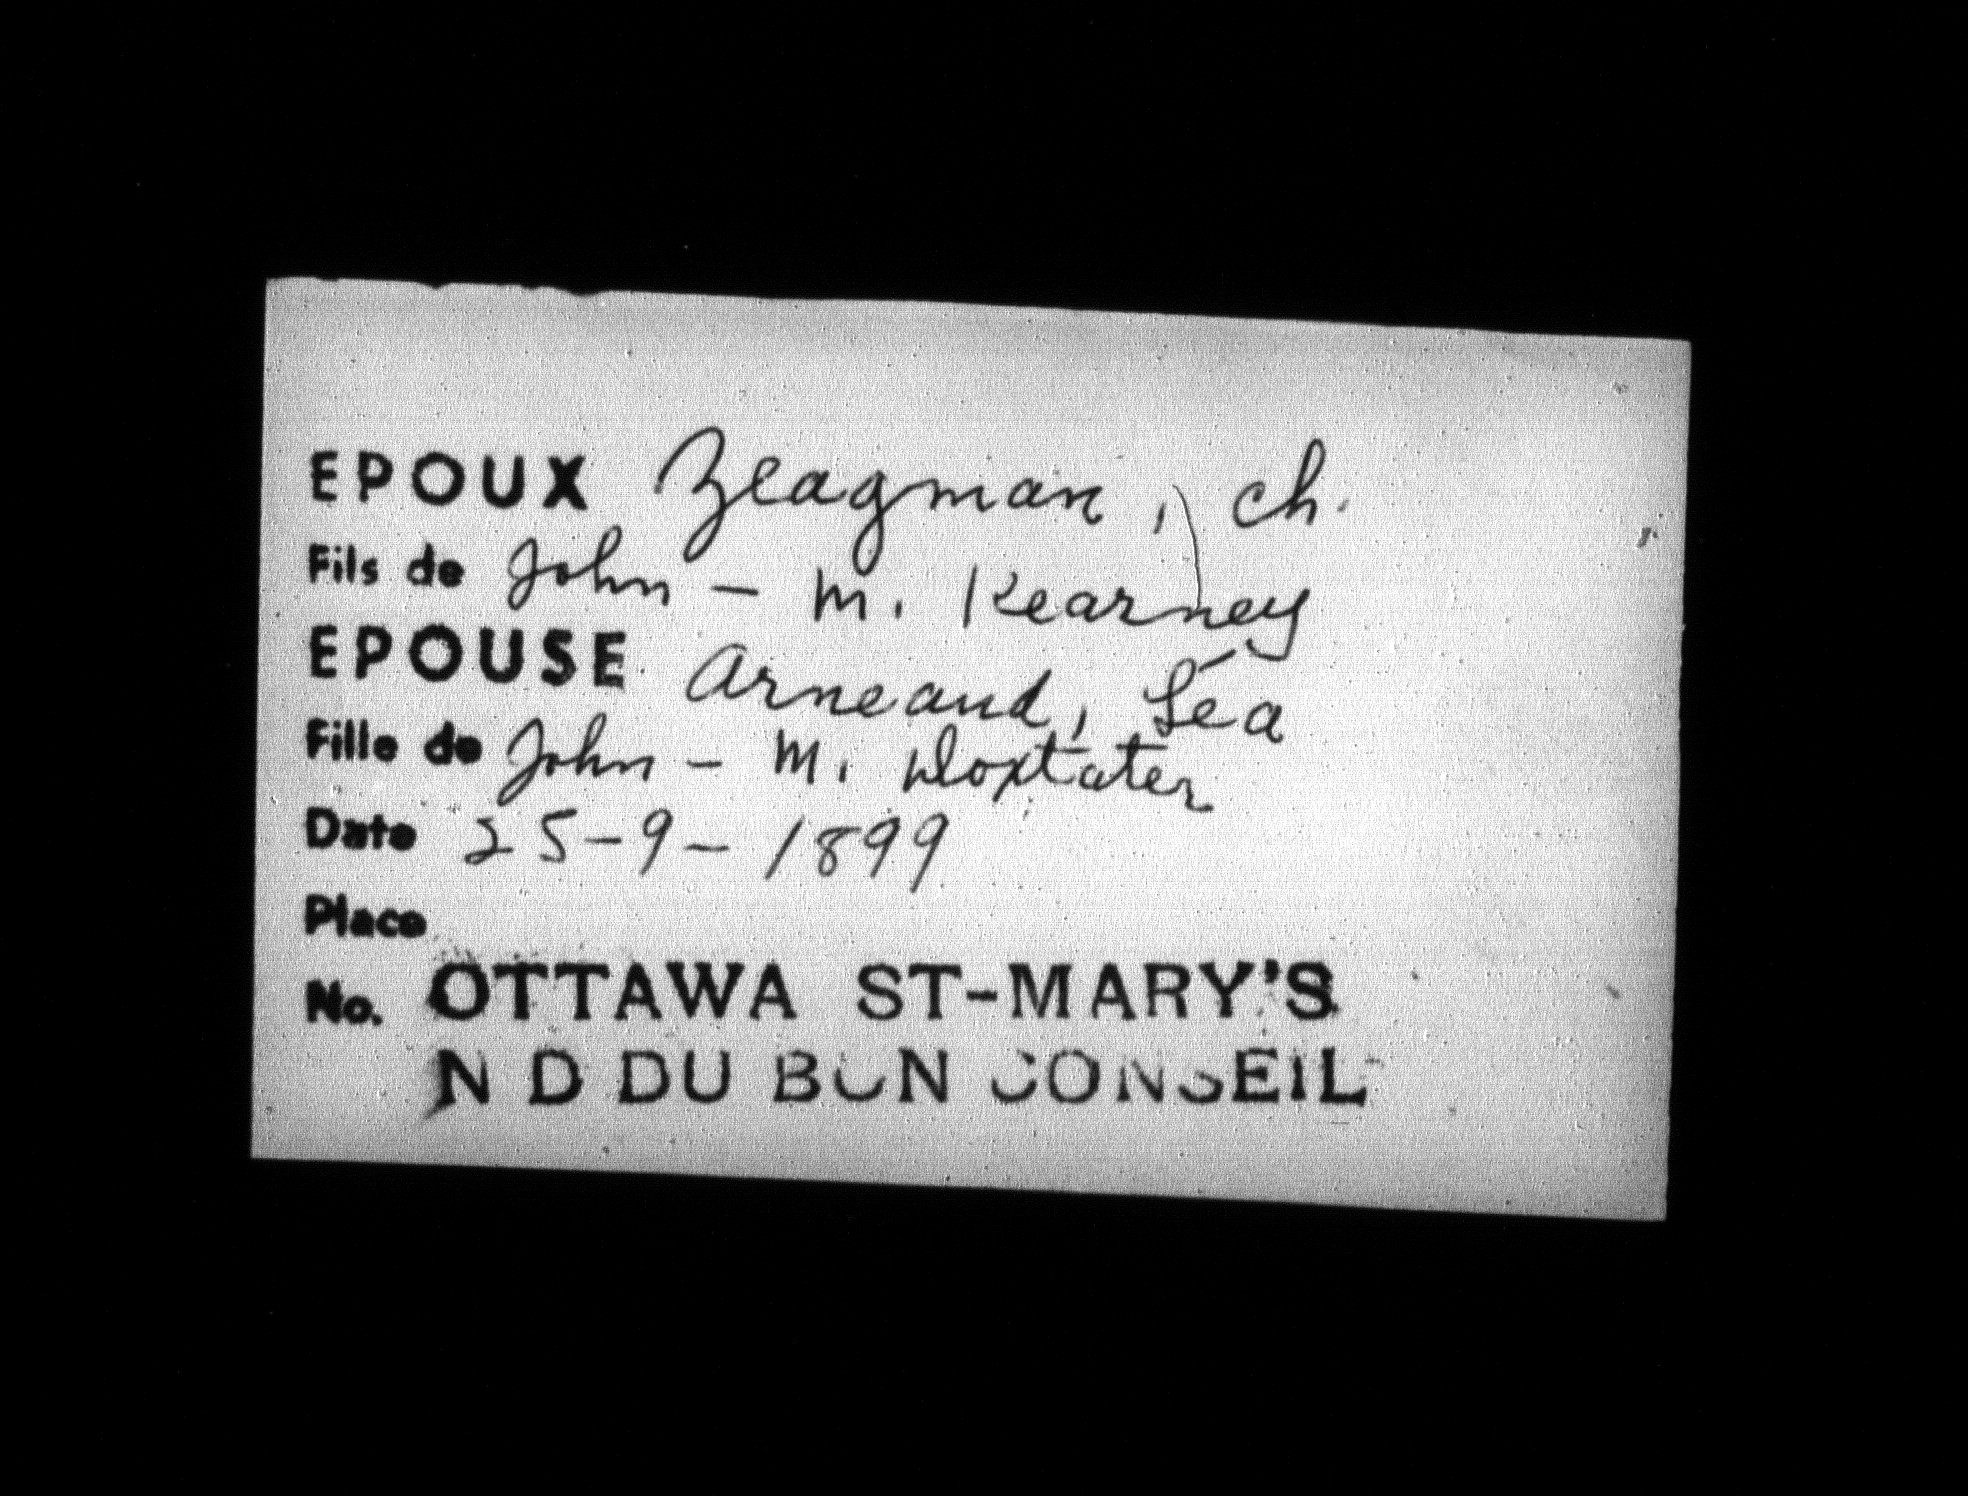 EPOUX Zeagman, ch.
Fils de John - M. Kearney
EPOUSE Arneaud, Léa
Fille de John - M. Doxtater
Date 25-9-1899
Place
No. OTTAWA ST-MARY'S
N D DU BON CONSEIL